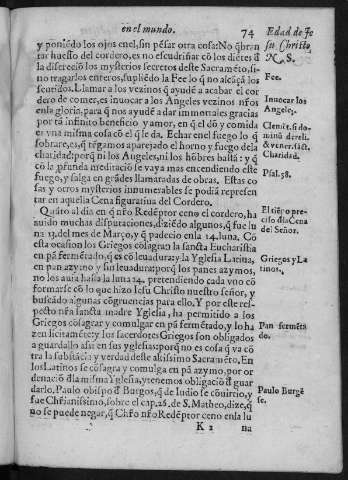 en el mundo.
74
Edad de Je
su Christo
N. S.
y poniēdo los ojos enel, sin pēsar otra cosa: No q̄bran
tar huesso del cordero, es no escudriñar cō los diētes d̄
la discreciō los mysterios secretos deste Sacramēto, si-
no tragarlos enteros, supliēdo la Fee lo q̄ no alcāçā los
sentidos. Llamar a los vezinos q̄ ayudē a acabar el cor
dero de comer, es inuocar a los Angeles vezinos nr̄os
en la gloria, para q̄ nos ayudē a dar immortales gracias
por tā infinito beneficio y amor, en q̄ el dō y comida
es vna misma cosa cō el q̄ le da. Echar en el fuego lo q̄
sobrare, es, q̄ tēgamos aparejado el horno y fuego dela
charidad: porq̄ ni los Angeles, ni los hōbres bastā: y q̄
cō la pfunda meditaciō se vaya mas encendiendo este
fuego, y salga en grādes llamaradas de obras. Estas co
sas y otros mysterios innumerables se podiā represen
tar en aquella Cena figuratiua del Cordero.
Quāto al dia en q̄ nr̄o Redēptor ceno el cordero, ha
auido muchas disputaciones, diziēdo algunos, q̄ fue lu
na 13. del mes de Março, y q̄ padecio en la 14. luna. Cō
esta ocasion los Griegos cōsagran la sancta Eucharistia
en pā fermētado, q̄ es cō leuadura: y la Yglesia Latina,
en pan azymo y sin leuadura: porq̄ los panes azymos,
no los auia hasta la luna 14. pretendiendo cada vno cō
formarse cō lo que hizo Iesu Christo nuestro señor, y
buscādo algunas cōgruencias para ello. Y por este res-
pecto nr̄a sancta madre Yglesia, ha permitido a los
Griegos cōsagrar y comulgar en pā fermētado, y lo ha
zen licitamēte: y los sacerdotes Griegos son obligados
a guardallo assi en sus yglesias: porq̄ no es cosa q̄ va cō
tra la substācia y verdad deste altissimo Sacramēto. En
los Latinos se cōsagra y comulga en pā azymo, por or
denaciō d̄la misma Yglesia, y tenemos obligaciō d̄ guar
darlo. Paulo obispo d̄ Burgos, q̄ de Iudio se cōuirtio, y
fue Chr̄ianissimo, sobre el cap. 26. de S. Matheo, dize, q̄
no se puede negar, q̄ Chr̄o nr̄o Redēptor ceno en la lu
K 2
na
Fee.
Inuocar los
Angeles.
Clemēt. ū. do
minū de reli.
& vener. sāct.
Charidad.
Psal. 58.
El tiēpo pre-
ciso d̄la Cena
del Señor.
Griegos y La
tinos.
Pan fermēta
do.
Paulo Burgē
se.